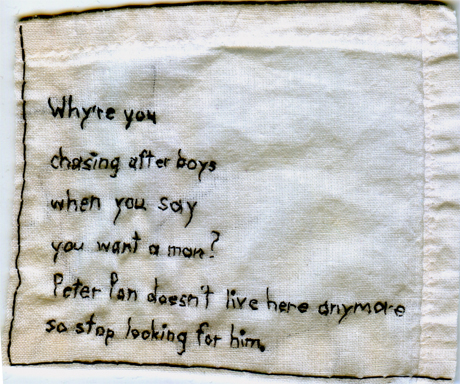 Why're you
chasing after boys
when you say
you want a man?
Peter Pan doesn't live here anymore
so stop looking for him.